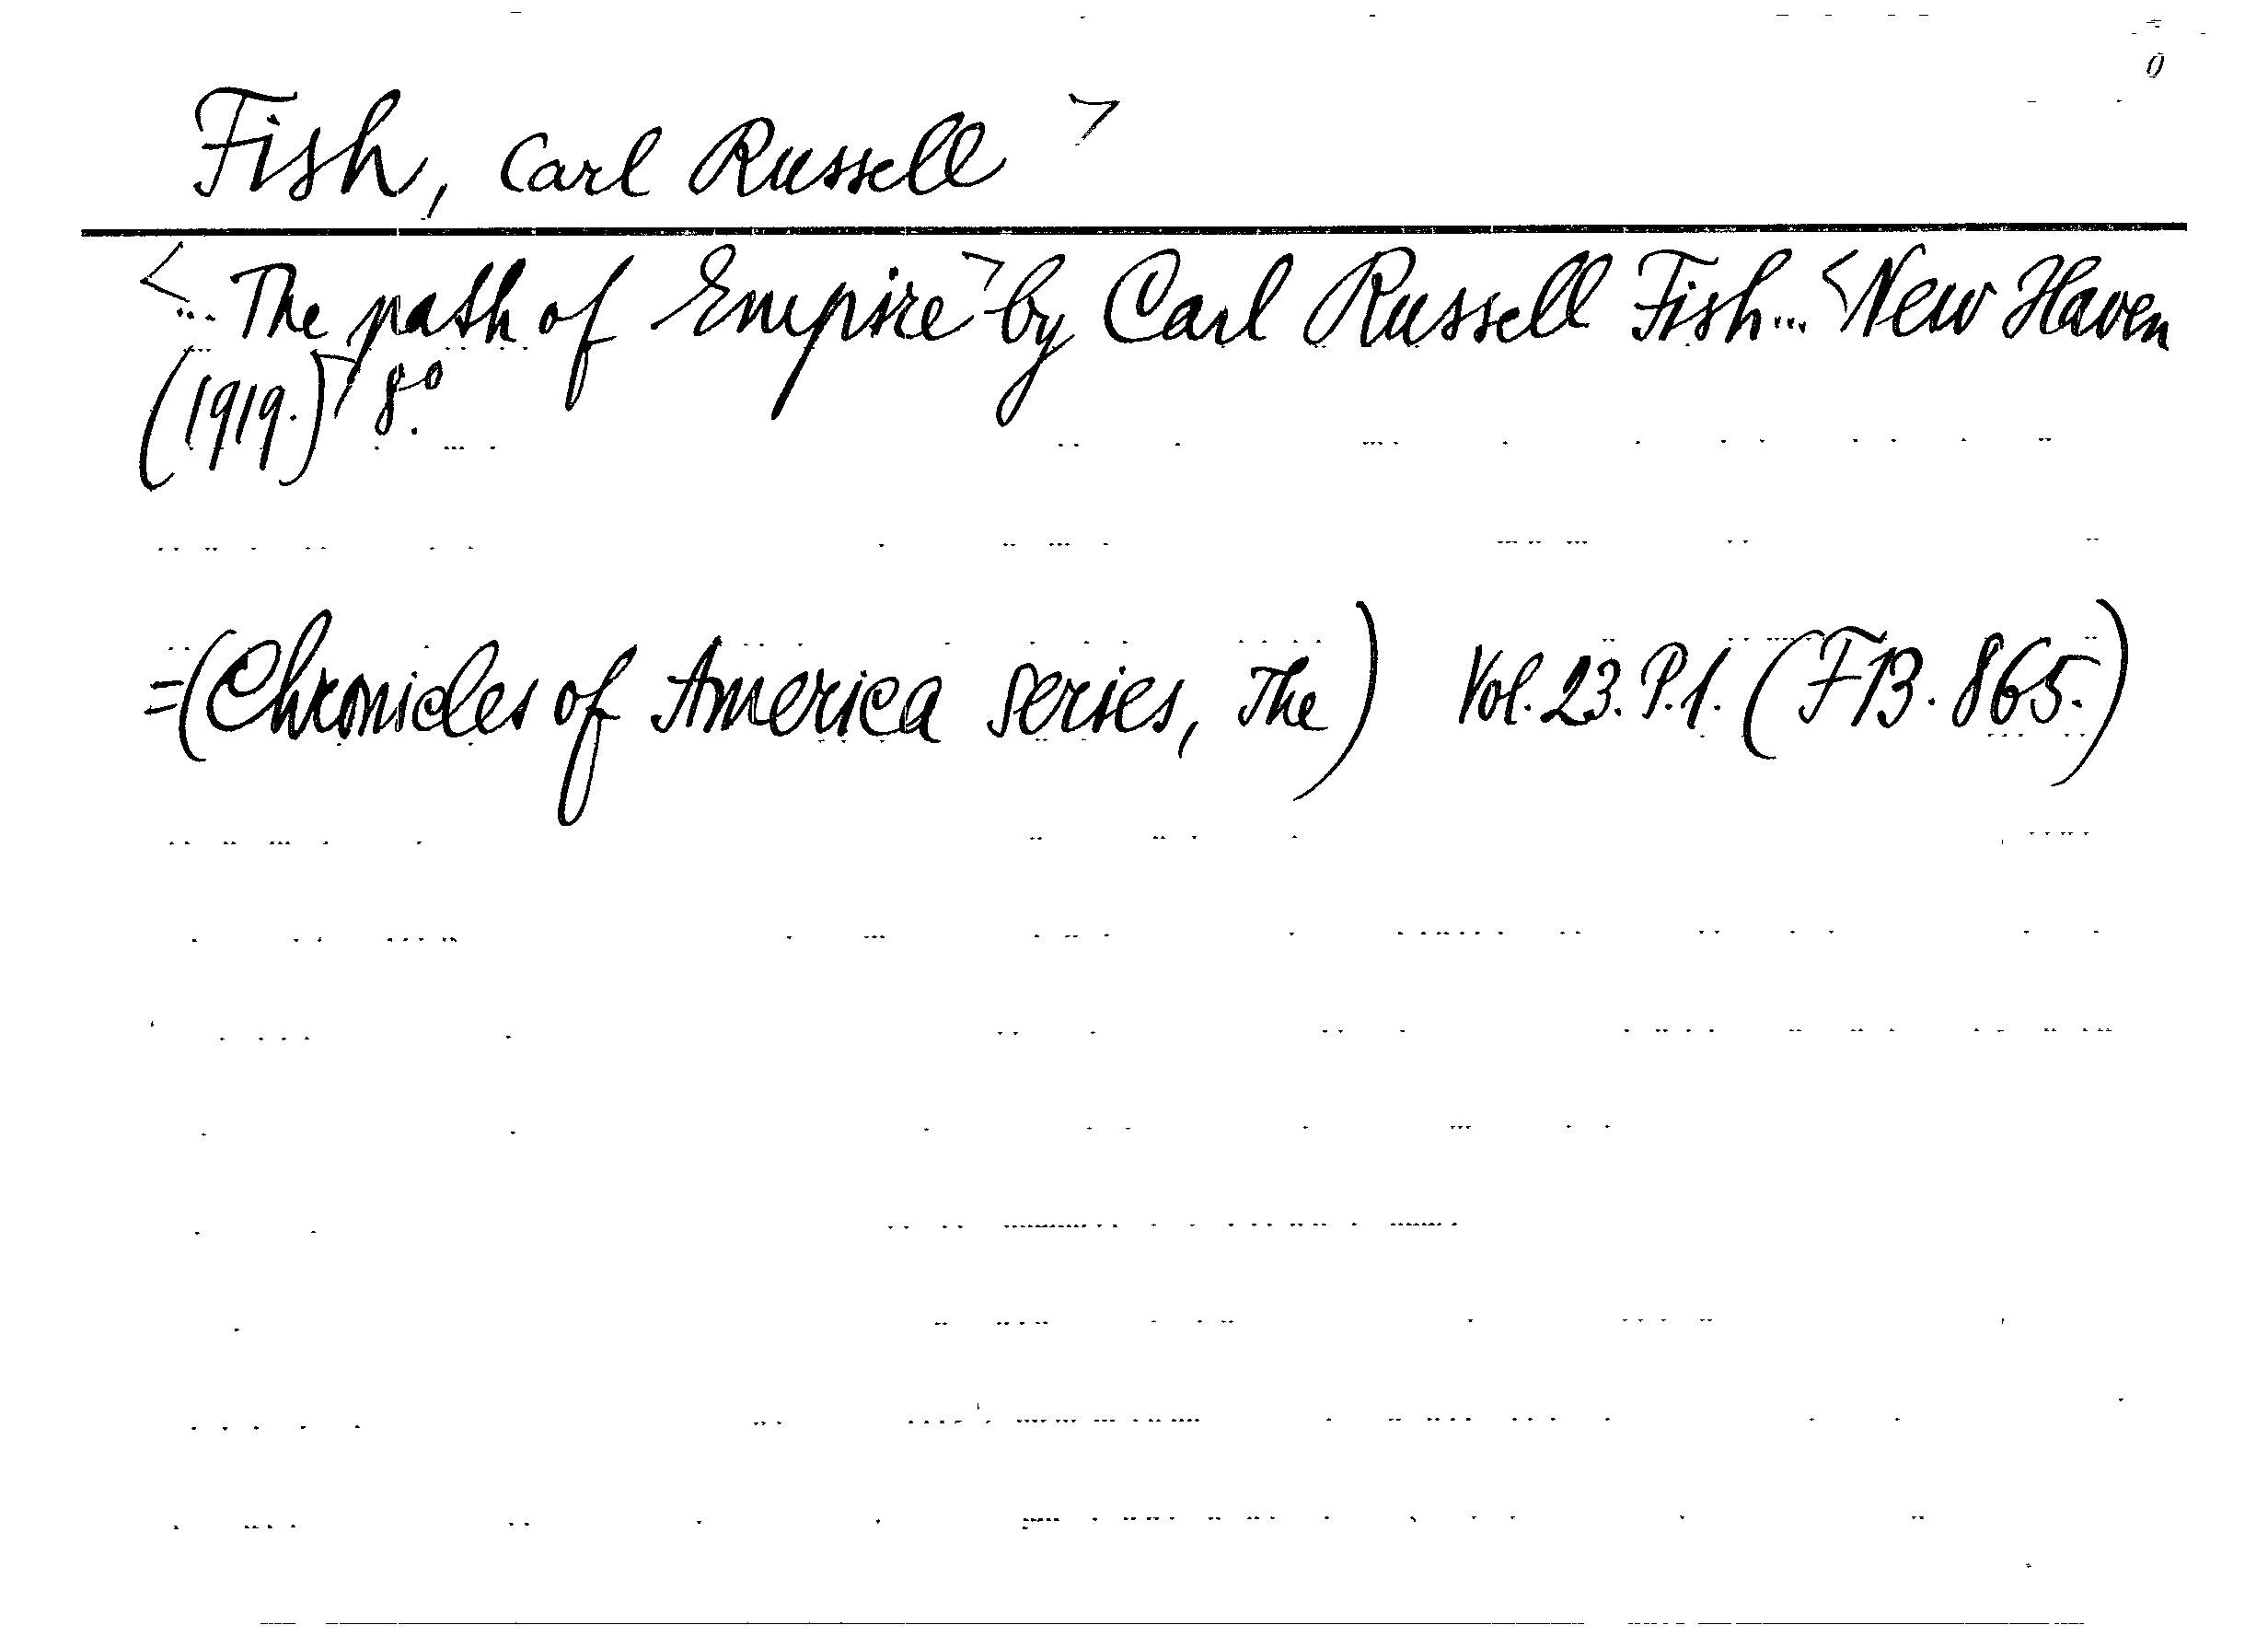 Fish, Carl Russell >
<... The path of Empire> by Carl Russell Fish... <New Haven
(1919.)> 8.º
=(Chronicles of America series, The) Vol. 23. P.1. (FB. 865.)